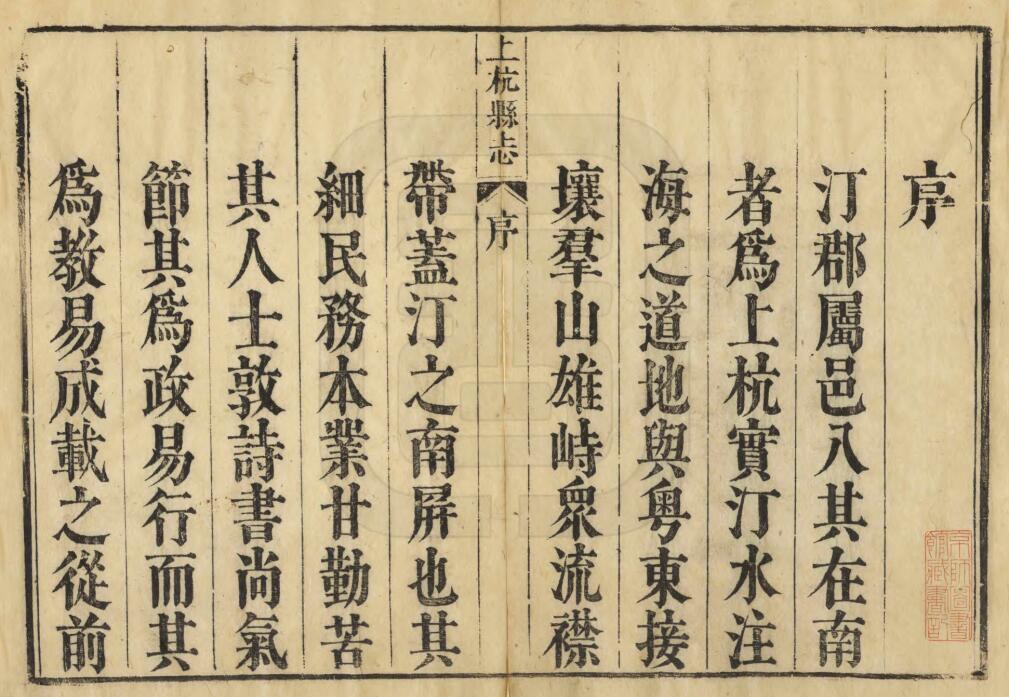 序
汀郡屬邑八其在南
者爲上杭實汀水注
海之道地與粤東接
壤羣山雄峙衆流襟
上杭縣志 序
帶蓋汀之南屏也其
細民務本業甘勤苦
其人士敦詩書尚氣
節其爲政易行而其
爲教易成載之從前
京師圖書
館藏書記